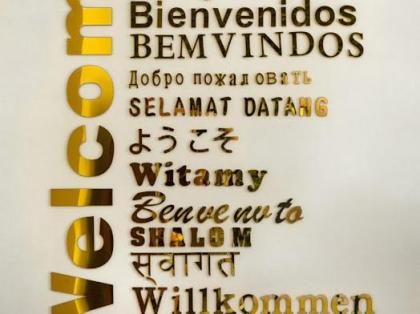 Welcom
Bienvenidos
BEMVINDOS
Добро пожаловать
SELAMAT DATANG
ようこそ
Witamy
Benvenuto
SHALOM
स्वागत
Willkommen